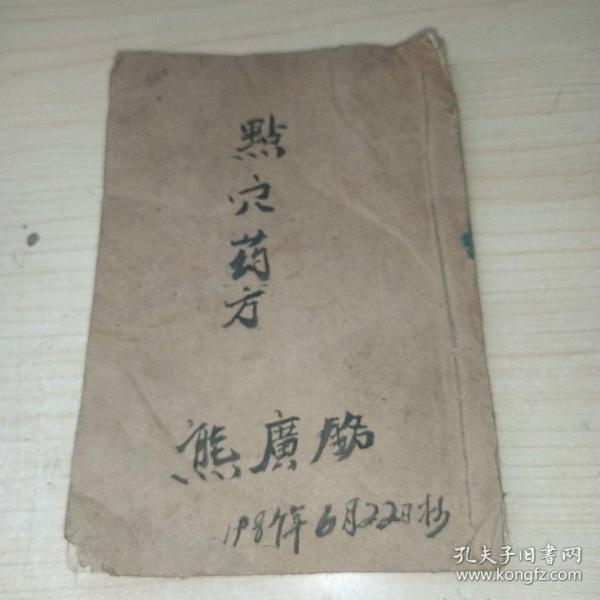 點穴药方
熊廣銘
1987年6月22日抄
孔夫子旧书网
www.kongfz.com